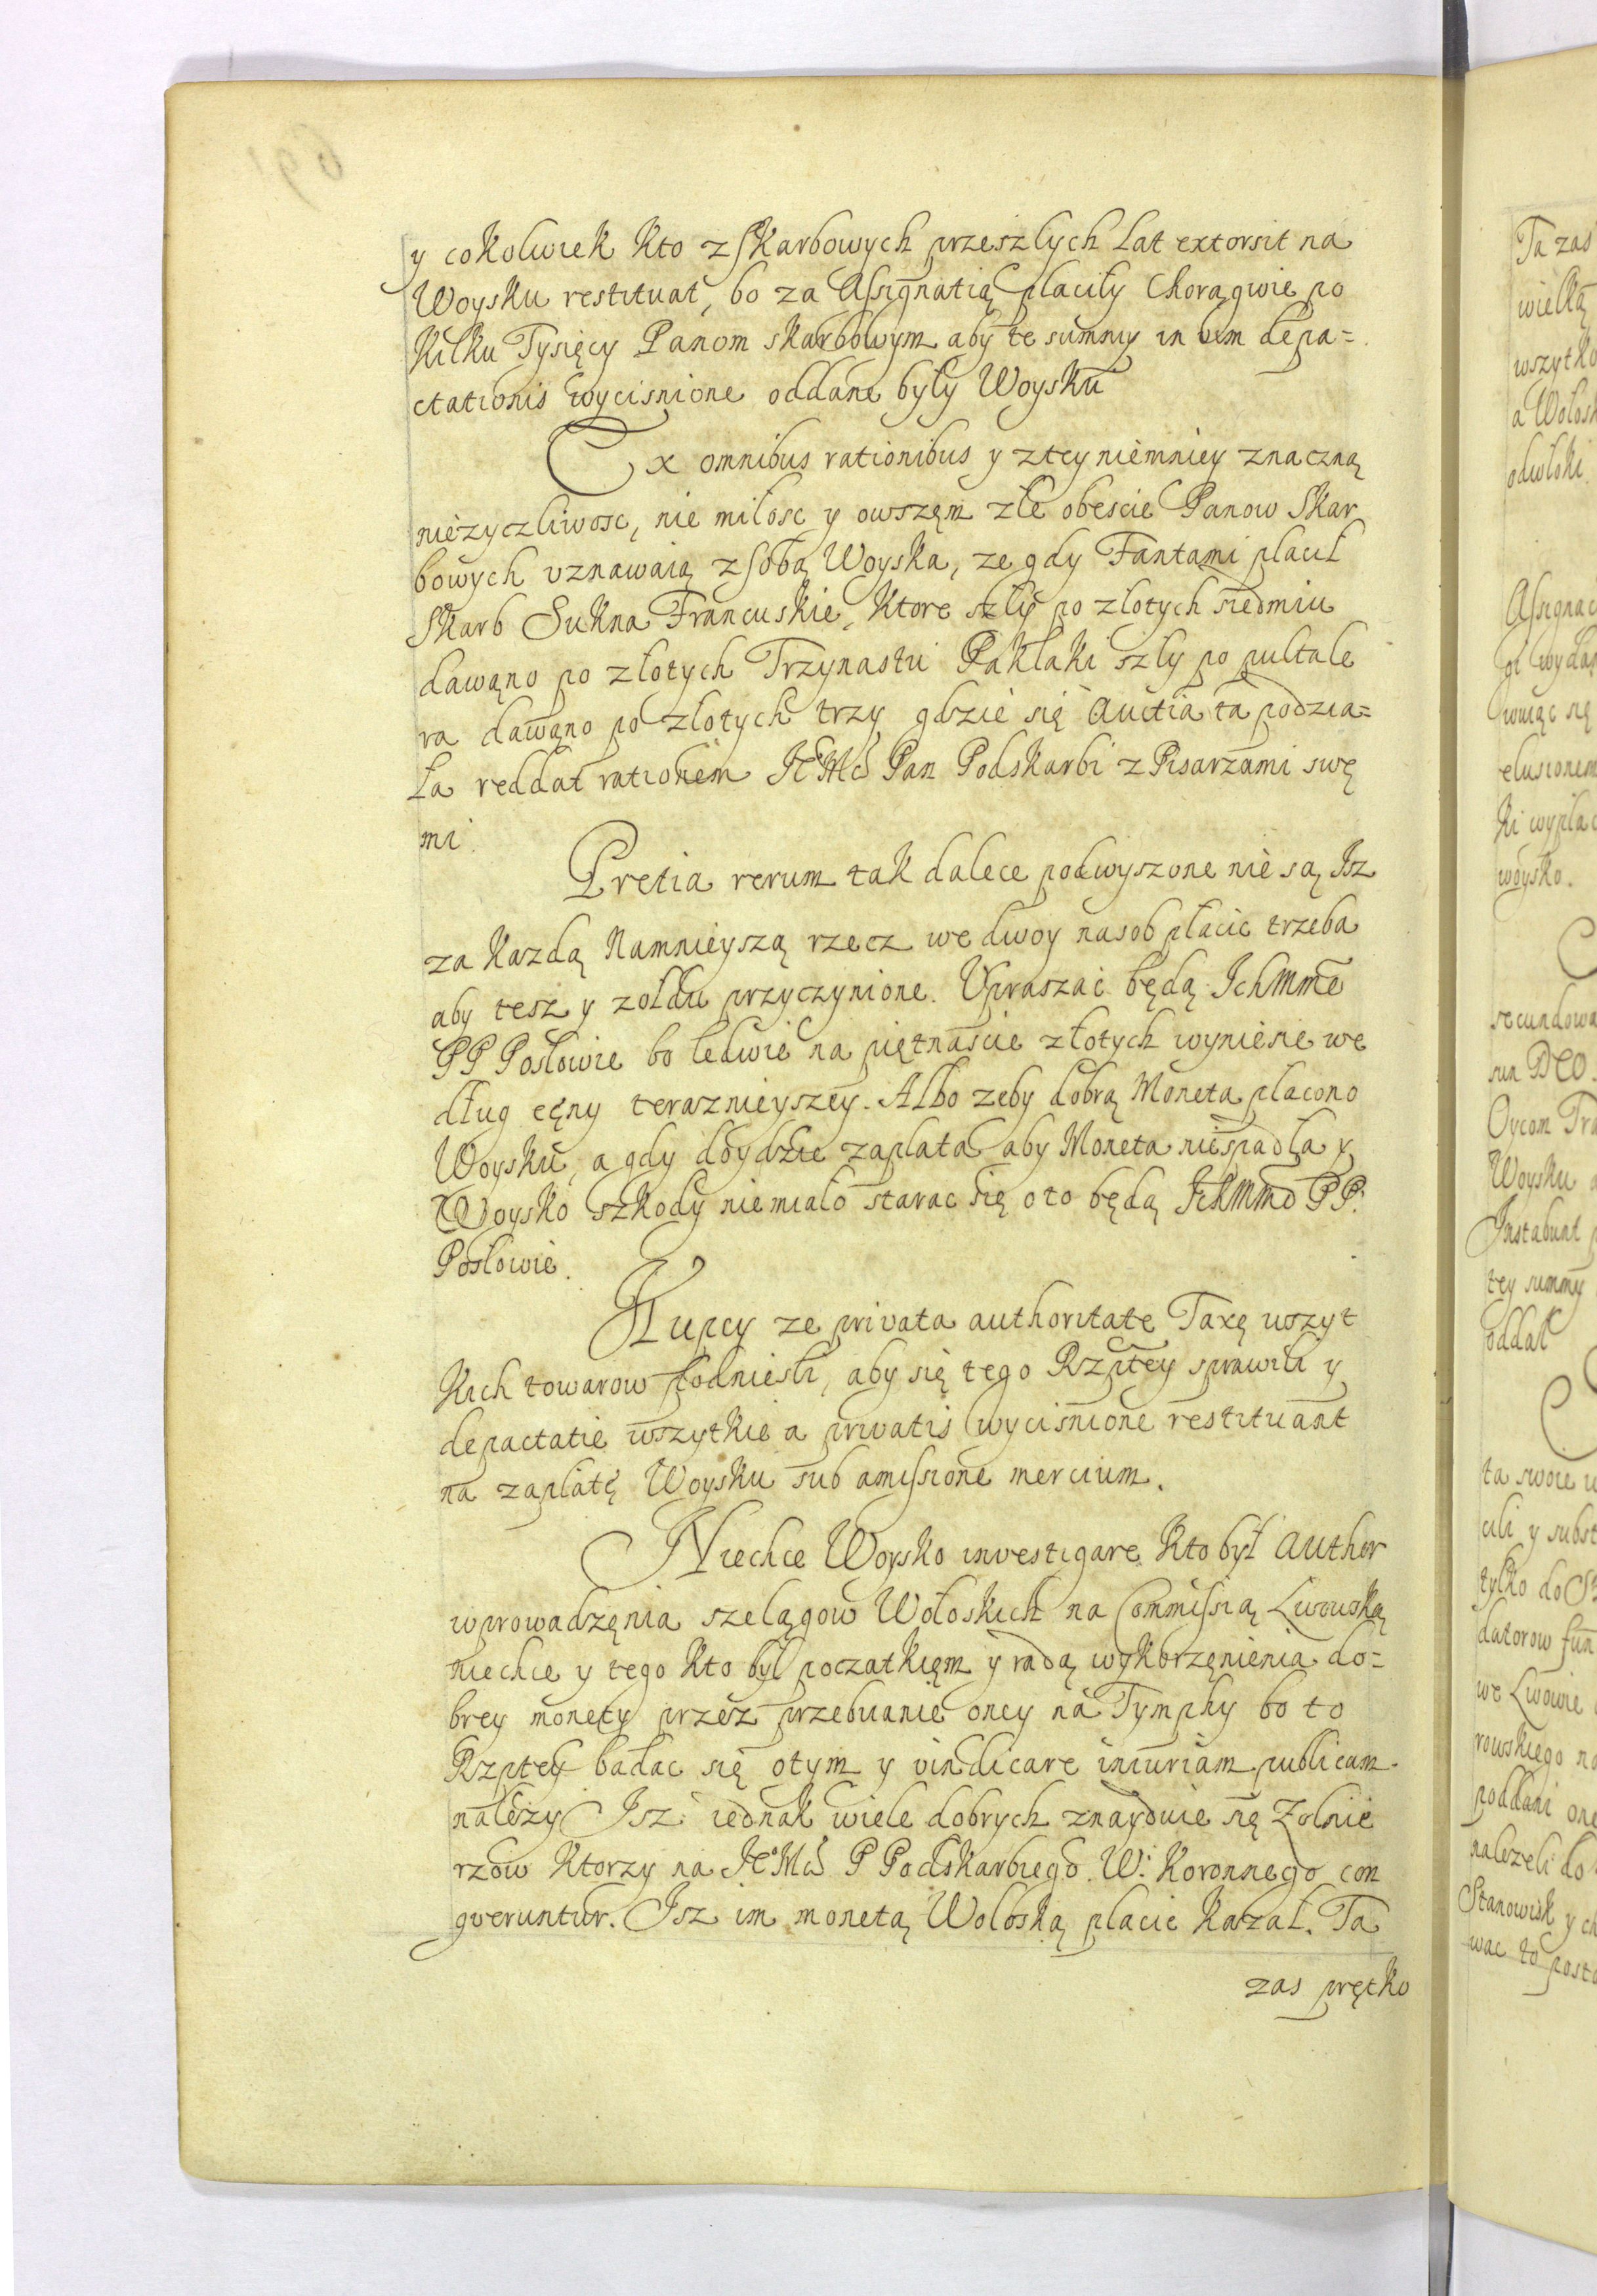 y cokolwiek kto z skarbowych przeszłych lat extorsit na
Woysku restituat, bo za Assignatią płaciły Chorągwie po
kilku Tysięcy Panom skarbowym aby te summy in vim depa=
ctationis wycisnione oddane były Woysku
Ex omnibus rationibus y z tey niemniey znaczną
nieżyczliwosc, nie miłosc y owszęm złe obescie Panow Skar
bowych uznawaią z sobą Woyska, ze gdy Fantami płacił
Skarb Sukna Francuskie, ktore szły po złotych siedmiu
dawąno po złotych Trzynastu Pakłaki szły po pultale
ra dawąno po złotych trzy gdzie się Auctia ta podzia=
ła reddat rationem Je͠Mć Pan Podskarbi z Pisarzami swę
mi.
Pretia rerum tak dalece podwyszone nie są Isz
za kazdą Namnieyszą rzecz we dwoy nasob płacic trzeba
aby tesz y zołdu przyczynione. Upraszać będą IchMmć
PP Posłowie bo ledwie na piętnascie złotych wyniesie we
dług cęny terazniejszey. Albo zeby dobrą Moneta płacono
Woysku, a gdy doydzie zapłata aby Moneta niespadła y
Woysko szkody niemiało starac się o to będą IchMmć PP.
Posłowie.
Kupcy ze privata authoritate Taxę wszyt
kich towarow podniesli, aby się tego Rzptey sprawili y
depactatie wszytkie a privatis wycisnione restituant
na zapłatę Woysku sub amissione mercium.
Niechce Woysko investigare kto był Author
wprowadzęnia szelągow Wołoskich na Commissią Lwowską
niechce y tego kto był początkięm y radą wykorzęnienia do=
brey monety przez przebiianie oney na Tymphy bo to
Rzptey badac się o tym y vindicare iniuriam publicam
nalezy Isz iednak wiele dobrych znayduie się Zołnie
rzow ktorzy na Je͠Mć P Podskarbiego W. Koronnego con
queruntur. Isz im monetą Wołoską płacic kazał. Ta
zas prętko
Ta zas
wielką
wszytko
a Wołosk
odwłoki
Assignac
wiąc się
elusionem
ki wypłac
woysko.
secundowa
Oycom Tra
Woysku
Instabunt
tey summy
oddał
ta swoie
cili y subst
tylko do
datorow fun
we Lwowie
rowskiego na
poddani one
nalezeli do
Stanowisk y ch
wac to posta